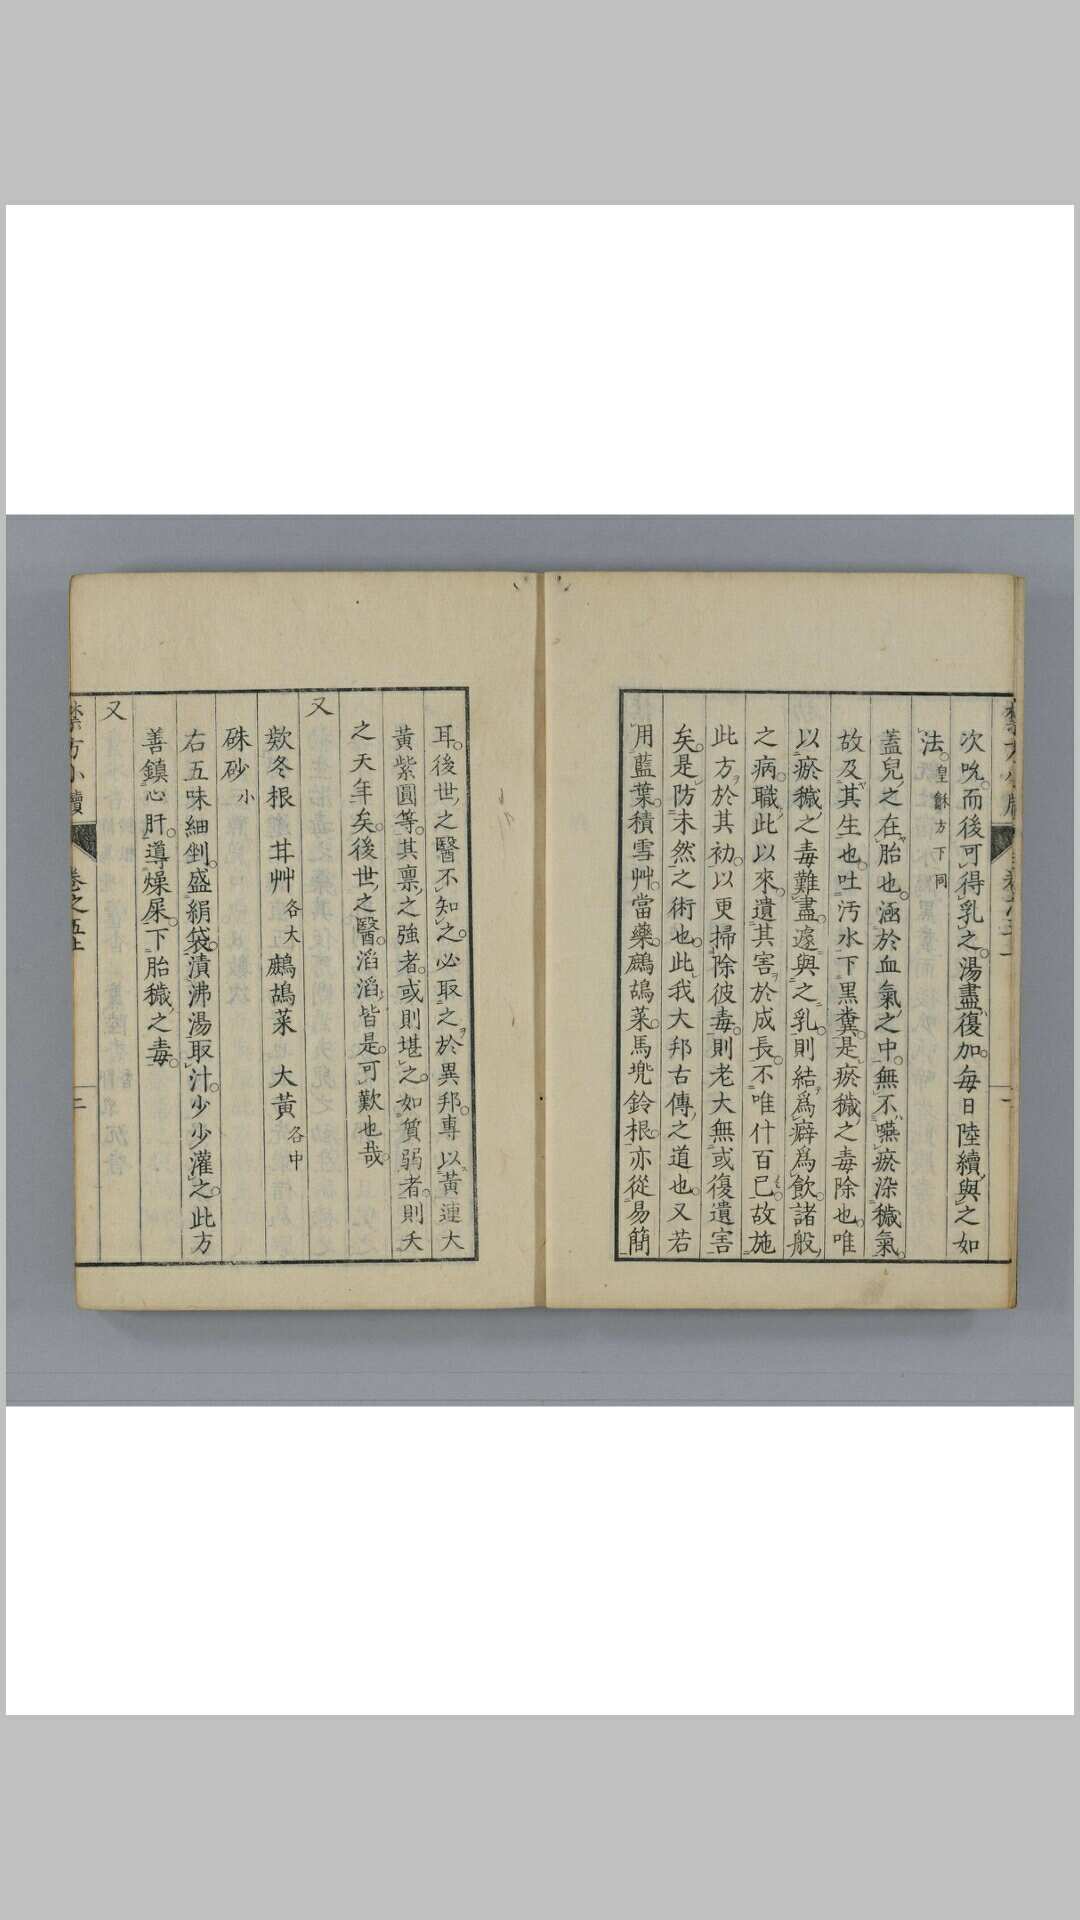 次吮。而後可得乳之。湯盡復加。每日陸續與之如
法。皇龢方下同
蓋兒之在胎也。涵於血氣之中。無不嚥瘀染穢氣。
故及其生也。吐汚水下黑糞。是瘀穢之毒除也。唯
以瘀穢之毒難盡。遽與之乳。則結爲癖爲飲。諸般
之病。職此以來。遺其害於成長。不唯什百已。故施
此方於其初。以更掃除彼毒。則老大無或復遺害
矣。是防未然之術也。此我大邦古傳之道也。又若
用藍葉。積雪艸。當藥。鷓鴣菜。馬兜鈴根。亦從易簡
耳。後世之醫不知之。必取之於異邦。專以黃連大
黃紫圓等。其稟之強者。或則堪之。如質弱者。則夭
之天年矣。後世之醫。滔滔皆是。可歎也哉。
又
欵冬根 甘艸各大 鷓鴣菜 大黃各中
硃砂小
右五味細剉。盛絹袋。漬沸湯取汁。少少灌之。此方
善鎮心肝。導燥屎。下胎穢之毒。
又
禁方小牘 卷之五上 二